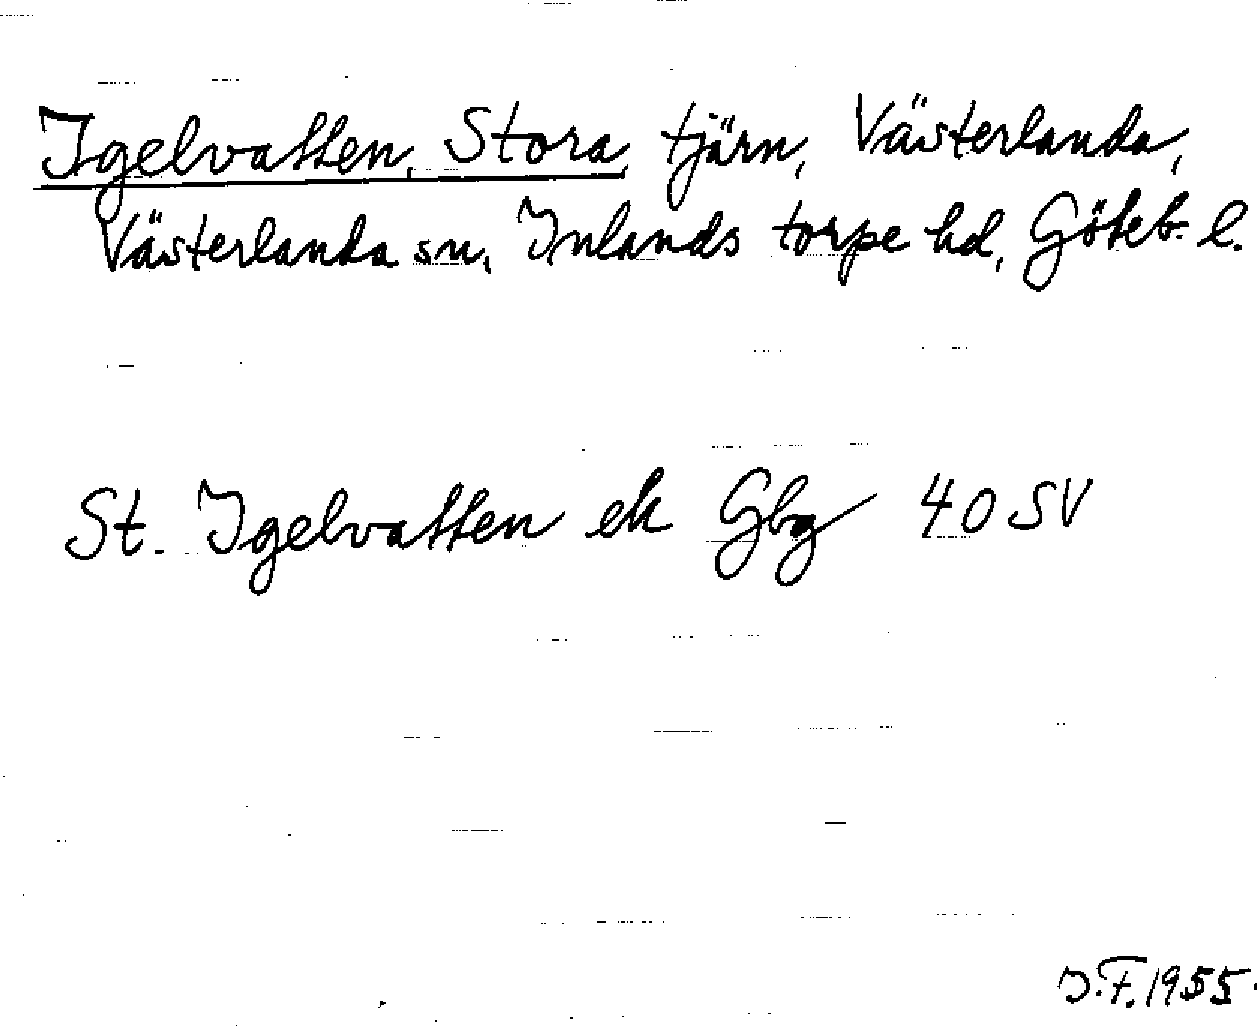 Igelvatten, Stora, tjärn, Västerlanda,
Västerlanda sn, Inlands torpe hd, Göteb. l.
St. Igelvatten ek Gbg 40 SV
J.F. 1955.